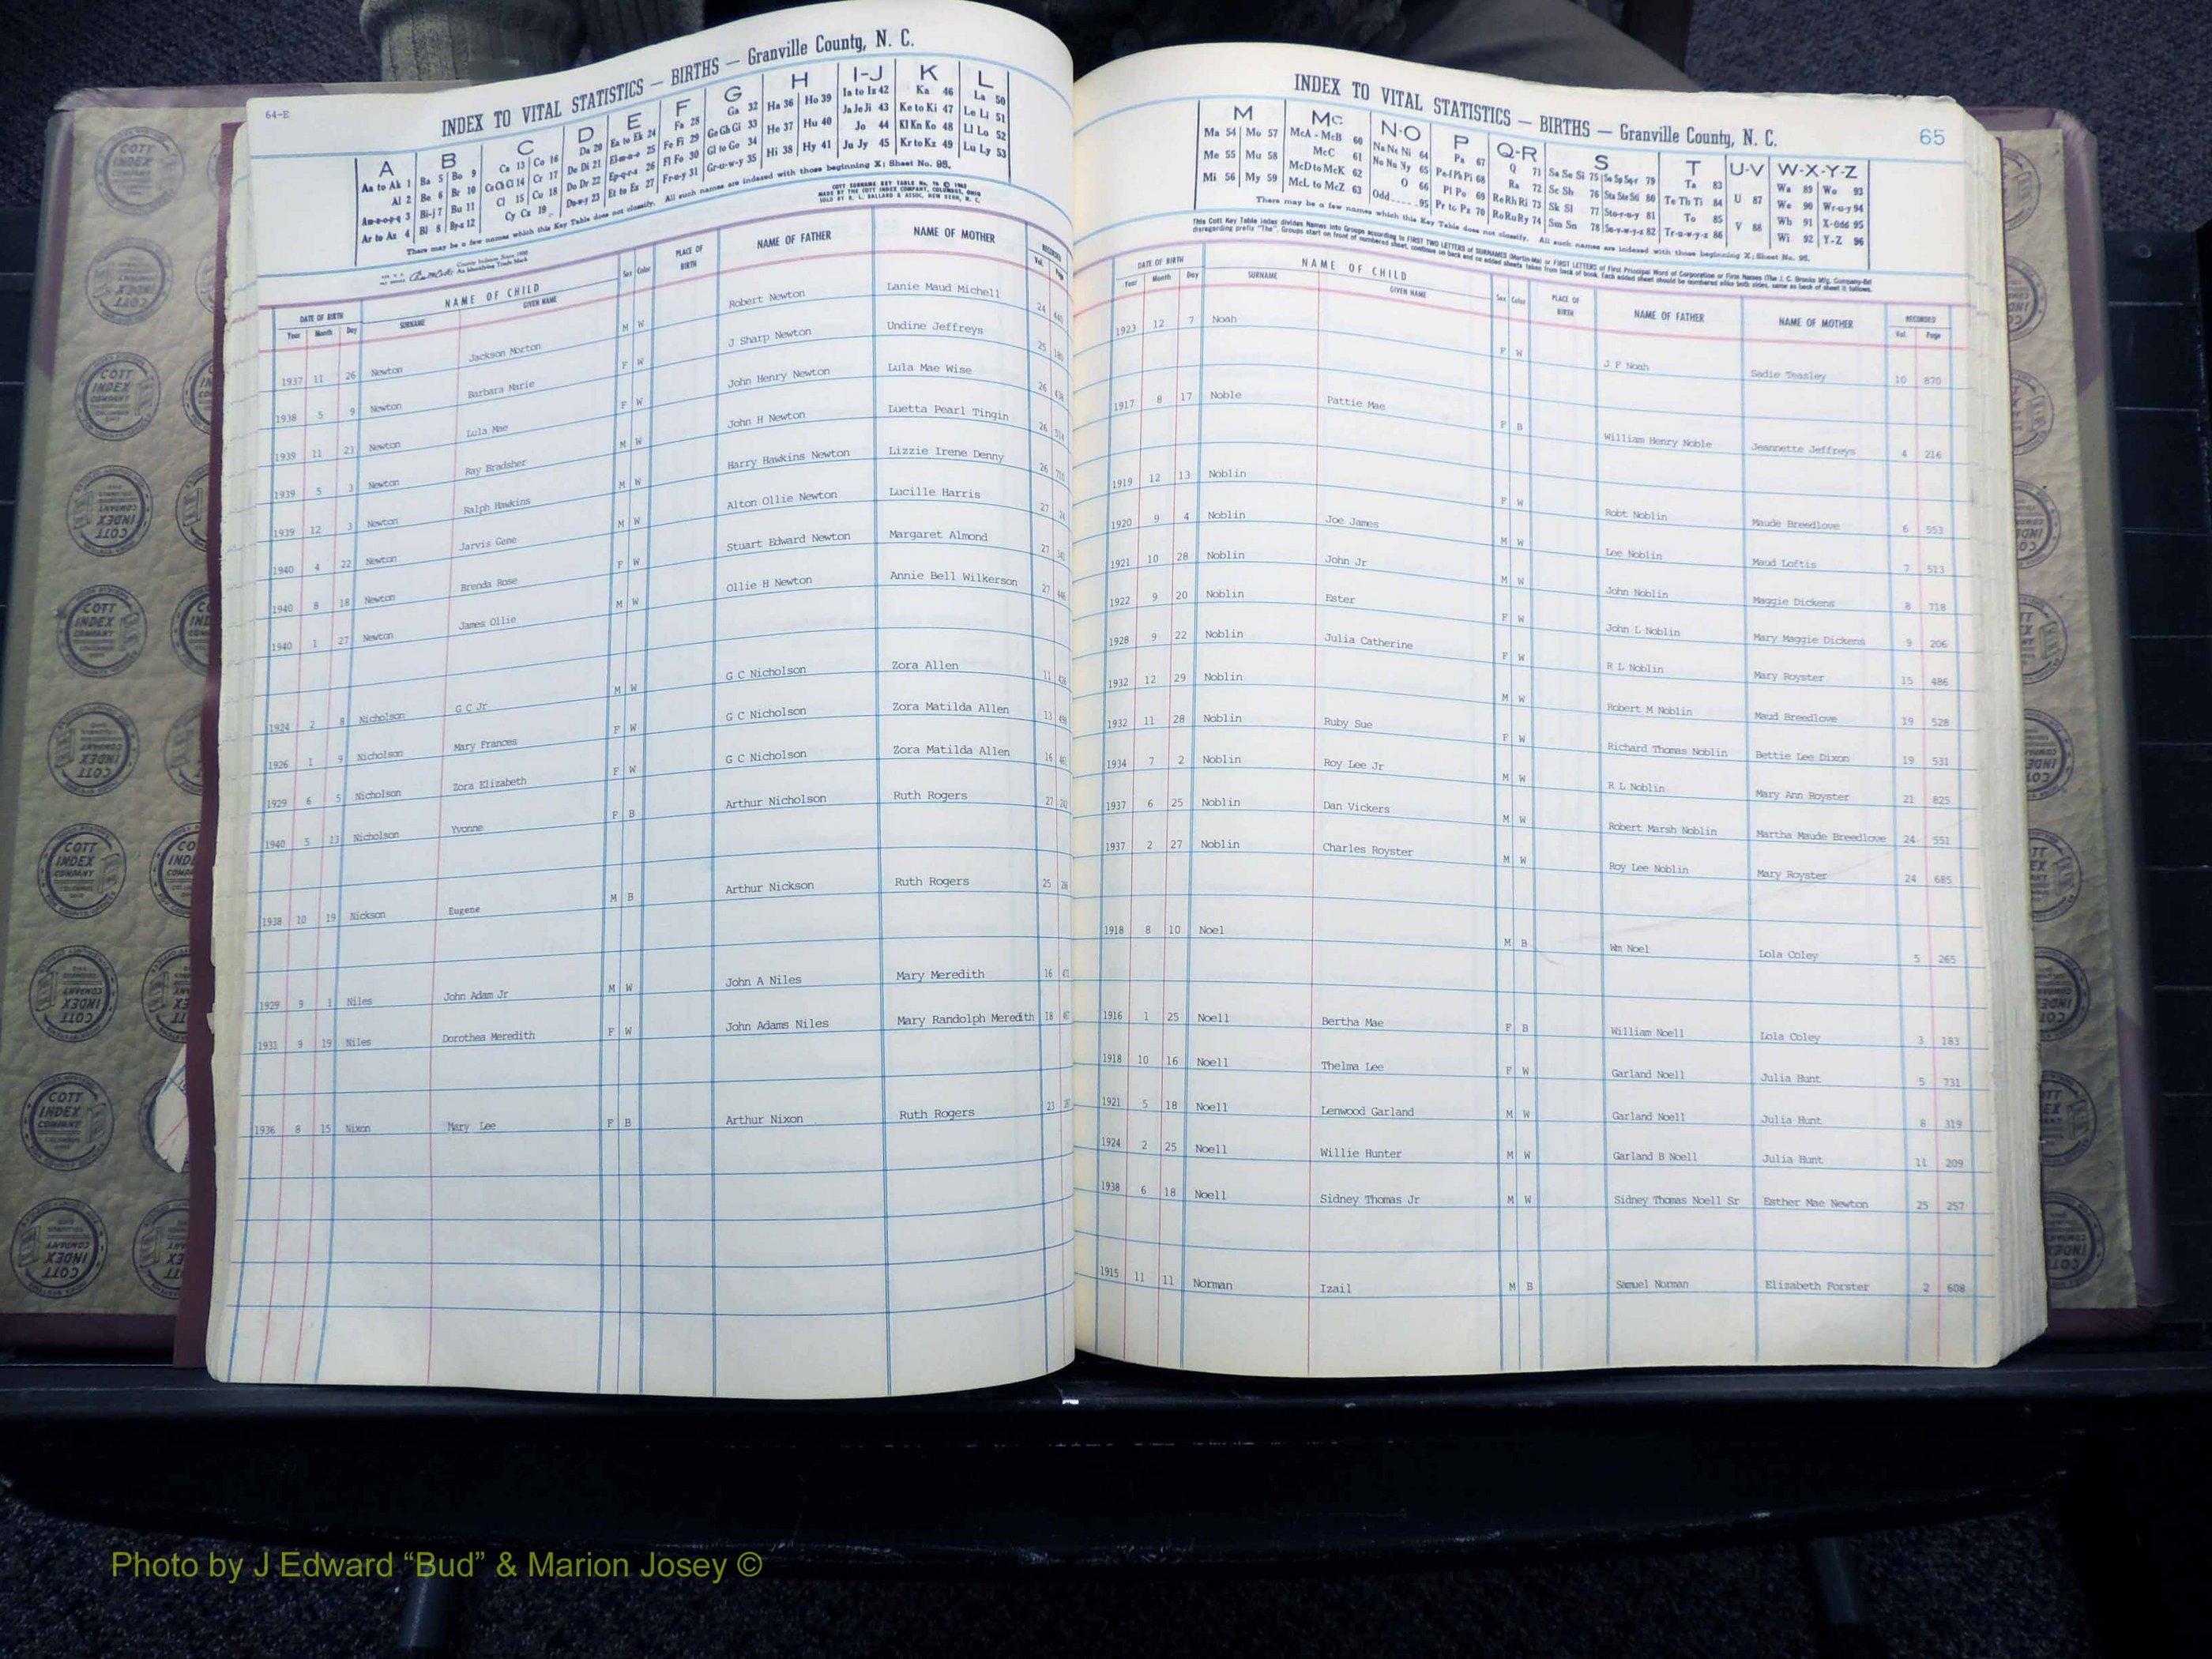 64-E
INDEX TO VITAL STATISTICS — BIRTHS — Granville County, N. C.
A B C D E F G H I-J K L
Aa to Ak 1 Ba 5 Bo 9 Ca 13 Co 16 Da 20 Ea to Ek 24 Fa 28 Ga 32 Ha 36 Ho 39 Ia to Iz 42 Ka 46 La 50
Al 2 Be 6 Br 10 Ce Ch Ci 14 Cr 17 De Di 21 El-m-n-o 25 Fe Fi 29 Ge Gh Gi 33 He 37 Hu 40 Ja Je Ji 43 Ke to Ki 47 Le Li 51
Am-n-o-p-q 3 Bi-J 7 Bu 11 Cl 15 Cu 18 Do Dr 22 Ep-q-r-s 26 Fl Fo 30 Gl to Go 34 Hi 38 Hy 41 Jo 44 Kl Kn Ko 48 Ll Lo 52
Ar to Az 4 Bl 8 By-z 12 Cy Cz 19 Du-w-y 23 Et to Ez 27 Fr-u-y 31 Gr-u-w-y 35 Ju Jy 45 Kr to Kz 49 Lu Ly 53
There may be a few names which this Key Table does not classify. All such names are indexed with those beginning X; Sheet No. 95.
NAME OF CHILD
DATE OF BIRTH
Year Month Day SURNAME GIVEN NAME Sex Color PLACE OF BIRTH NAME OF FATHER NAME OF MOTHER RECORDED Vol. Page
1937 11 26 Newton Jackson Morton M W Robert Newton Lanie Maud Michell 24
1938 5 9 Newton Barbara Marie F W J Sharp Newton Undine Jeffreys 25
1939 11 23 Newton Lula Mae F W John Henry Newton Lula Mae Wise 26
1939 5 3 Newton Ray Bradsher M W John H Newton Luetta Pearl Tingin 26
1939 12 3 Newton Ralph Hawkins M W Harry Hawkins Newton Lizzie Irene Denny 26
1940 4 22 Newton Jarvis Gene M W Alton Ollie Newton Lucille Harris 27
1940 8 18 Newton Brenda Rose F W Stuart Edward Newton Margaret Almond 27
1940 1 27 Newton James Ollie M W Ollie H Newton Annie Bell Wilkerson 27
1924 2 8 Nicholson G C Jr M W G C Nicholson Zora Allen 11
1926 1 9 Nicholson Mary Frances F W G C Nicholson Zora Matilda Allen 13
1929 6 5 Nicholson Zora Elizabeth F W G C Nicholson Zora Matilda Allen 16
1940 5 13 Nicholson Yvonne F B Arthur Nicholson Ruth Rogers 27
1938 10 19 Nickson Eugene M B Arthur Nickson Ruth Rogers 25
1929 9 1 Niles John Adam Jr M W John A Niles Mary Meredith 16
1931 9 19 Niles Dorothea Meredith F W John Adams Niles Mary Randolph Meredith 18
1936 8 15 Nixon Mary Lee F B Arthur Nixon Ruth Rogers 23
INDEX TO VITAL STATISTICS — BIRTHS — Granville County, N. C.
65
M Mc N-O P Q-R S T U-V W-X-Y-Z
Ma 54 Mo 57 McA - McB 60 Na Ne Ni 64 Pa 67 Q 71 Sa Sc Si 75 79 Ta 83 Wa 89 Wo 93
Me 55 Mu 58 McC 61 No Nu Ny 65 Pe-f Ph Pi 68 Ra 72 Sc Sh 76 80 Te Th Ti 84 U 87 We 90 Wr-u-y 94
Mi 56 My 59 McD to McK 62 O 66 Pl Po 69 Re Rh Ri 73 Sk Sl 77 Sto-r-u-y 81 To 85 V 88 Wh 91 X-Odd 95
McL to McZ 63 Odd 95 Pr to Pz 70 Ro Ru Ry 74 Sm Sn 78 Su-v-w-y-z 82 Tr-u-w-y-z 86 Wi 92 Y-Z 96
There may be a few names which this Key Table does not classify. All such names are indexed with those beginning X; Sheet No. 95.
NAME OF CHILD
DATE OF BIRTH
Year Month Day SURNAME GIVEN NAME Sex Color PLACE OF BIRTH NAME OF FATHER NAME OF MOTHER RECORDED Vol. Page
1923 12 7 Noah F W J F Noah Sadie Teasley 10 870
1917 8 17 Noble Pattie Mae F B William Henry Noble Jeannette Jeffreys 4 216
1919 12 13 Noblin F W Robt Noblin Maude Breedlove 6 553
1920 9 4 Noblin Joe James M W Lee Noblin Maud Loftis 7 513
1921 10 28 Noblin John Jr M W John Noblin Maggie Dickens 8 718
1922 9 20 Noblin Ester F W John L Noblin Mary Maggie Dickens 9 206
1928 9 22 Noblin Julia Catherine F W R L Noblin Mary Royster 15 486
1932 12 29 Noblin M W Robert M Noblin Maud Breedlove 19 528
1932 11 28 Noblin Ruby Sue F W Richard Thomas Noblin Bettie Lee Dixon 19 531
1934 7 2 Noblin Roy Lee Jr M W R L Noblin Mary Ann Royster 21 825
1937 6 25 Noblin Dan Vickers M W Robert Marsh Noblin Martha Maude Breedlove 24 551
1937 2 27 Noblin Charles Royster M W Roy Lee Noblin Mary Royster 24 685
1918 8 10 Noel M B Wm Noel Lola Coley 5 265
1916 1 25 Noell Bertha Mae F B William Noell Lola Coley 3 183
1918 10 16 Noell Thelma Lee F W Garland Noell Julia Hunt 5 731
1921 5 18 Noell Lenwood Garland M W Garland Noell Julia Hunt 8 319
1924 2 25 Noell Willie Hunter M W Garland B Noell Julia Hunt 11 209
1938 6 18 Noell Sidney Thomas Jr M W Sidney Thomas Noell Sr Esther Mae Newton 25 257
1915 11 11 Norman Izail M B Samuel Norman Elizabeth Forster 2 608
COTT INDEX COMPANY
Photo by J Edward “Bud” & Marion Josey ©